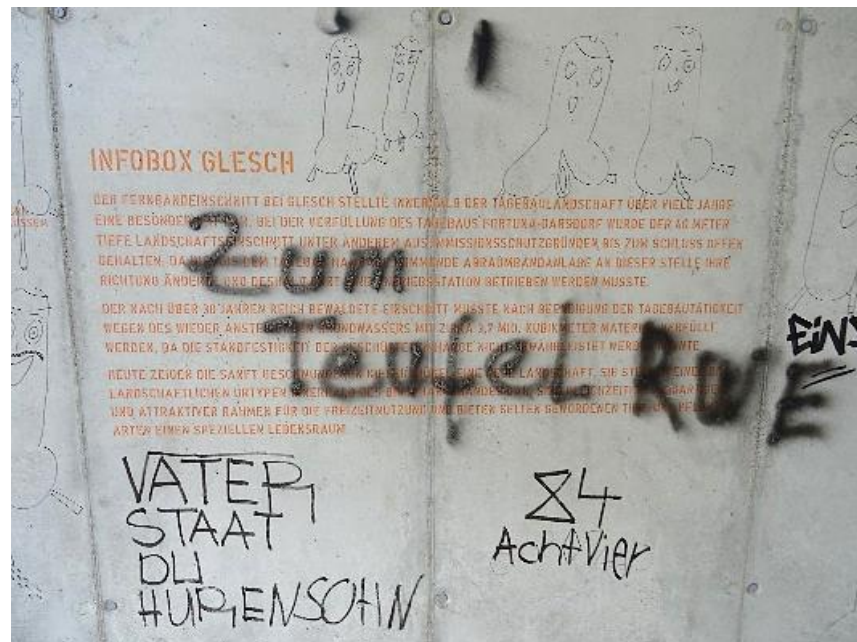 INFOBOX GLESCH
DER FERNBANDEINSCHNITT BEI GLESCH STELLTE INNERHALB DER TAGEBAULANDSCHAFT ÜBER VIELE JAHRE
EINE BESONDERHEIT BEI DER VERFÜLLUNG DES TAGEBAUS FORTUNA-GARSDORF WURDE DER 40 METER
TIEFE LANDSCHAFTSEINSCHNITT UNTER ANDEREM AUS IMMISSIONSSCHUTZGRÜNDEN BIS ZUM SCHLUSS OFFEN
GEHALTEN, DA DEM KOMMENDE ABRAUMBANDANLAGE AN DIESER STELLE IHRE
RICHTUNG ÄNDERTE UND BETRIEBEN WERDEN MUSSTE.
DER NACH ÜBER 30 JAHREN REICH BEWALDETE EINSCHNITT MUSSTE NACH BEENDIGUNG DER TAGEBAUTÄTIGKEIT
WEGEN DES WIEDER GRUNDWASSERS MIT 3,7 MIO. KUBIKMETER VERFÜLLT
WERDEN, DA DIE STANDFESTIGKEIT DER NICHT WERDEN
HEUTE ZEIGEN DIE SANFT LANDSCHAFT, SIE
LANDSCHAFTLICHEN URTYPEN
UND ATTRAKTIVER RAHMEN FÜR DIE FREIZEITNUTZUNG UND BIETEN SELTEN GEWORDENEN
ARTEN EINEN SPEZIELLEN LEBENSRAUM
Zum
Teufel RWE
EINS
VATER
STAAT
DU
HURENSOHN
84
AchtVier